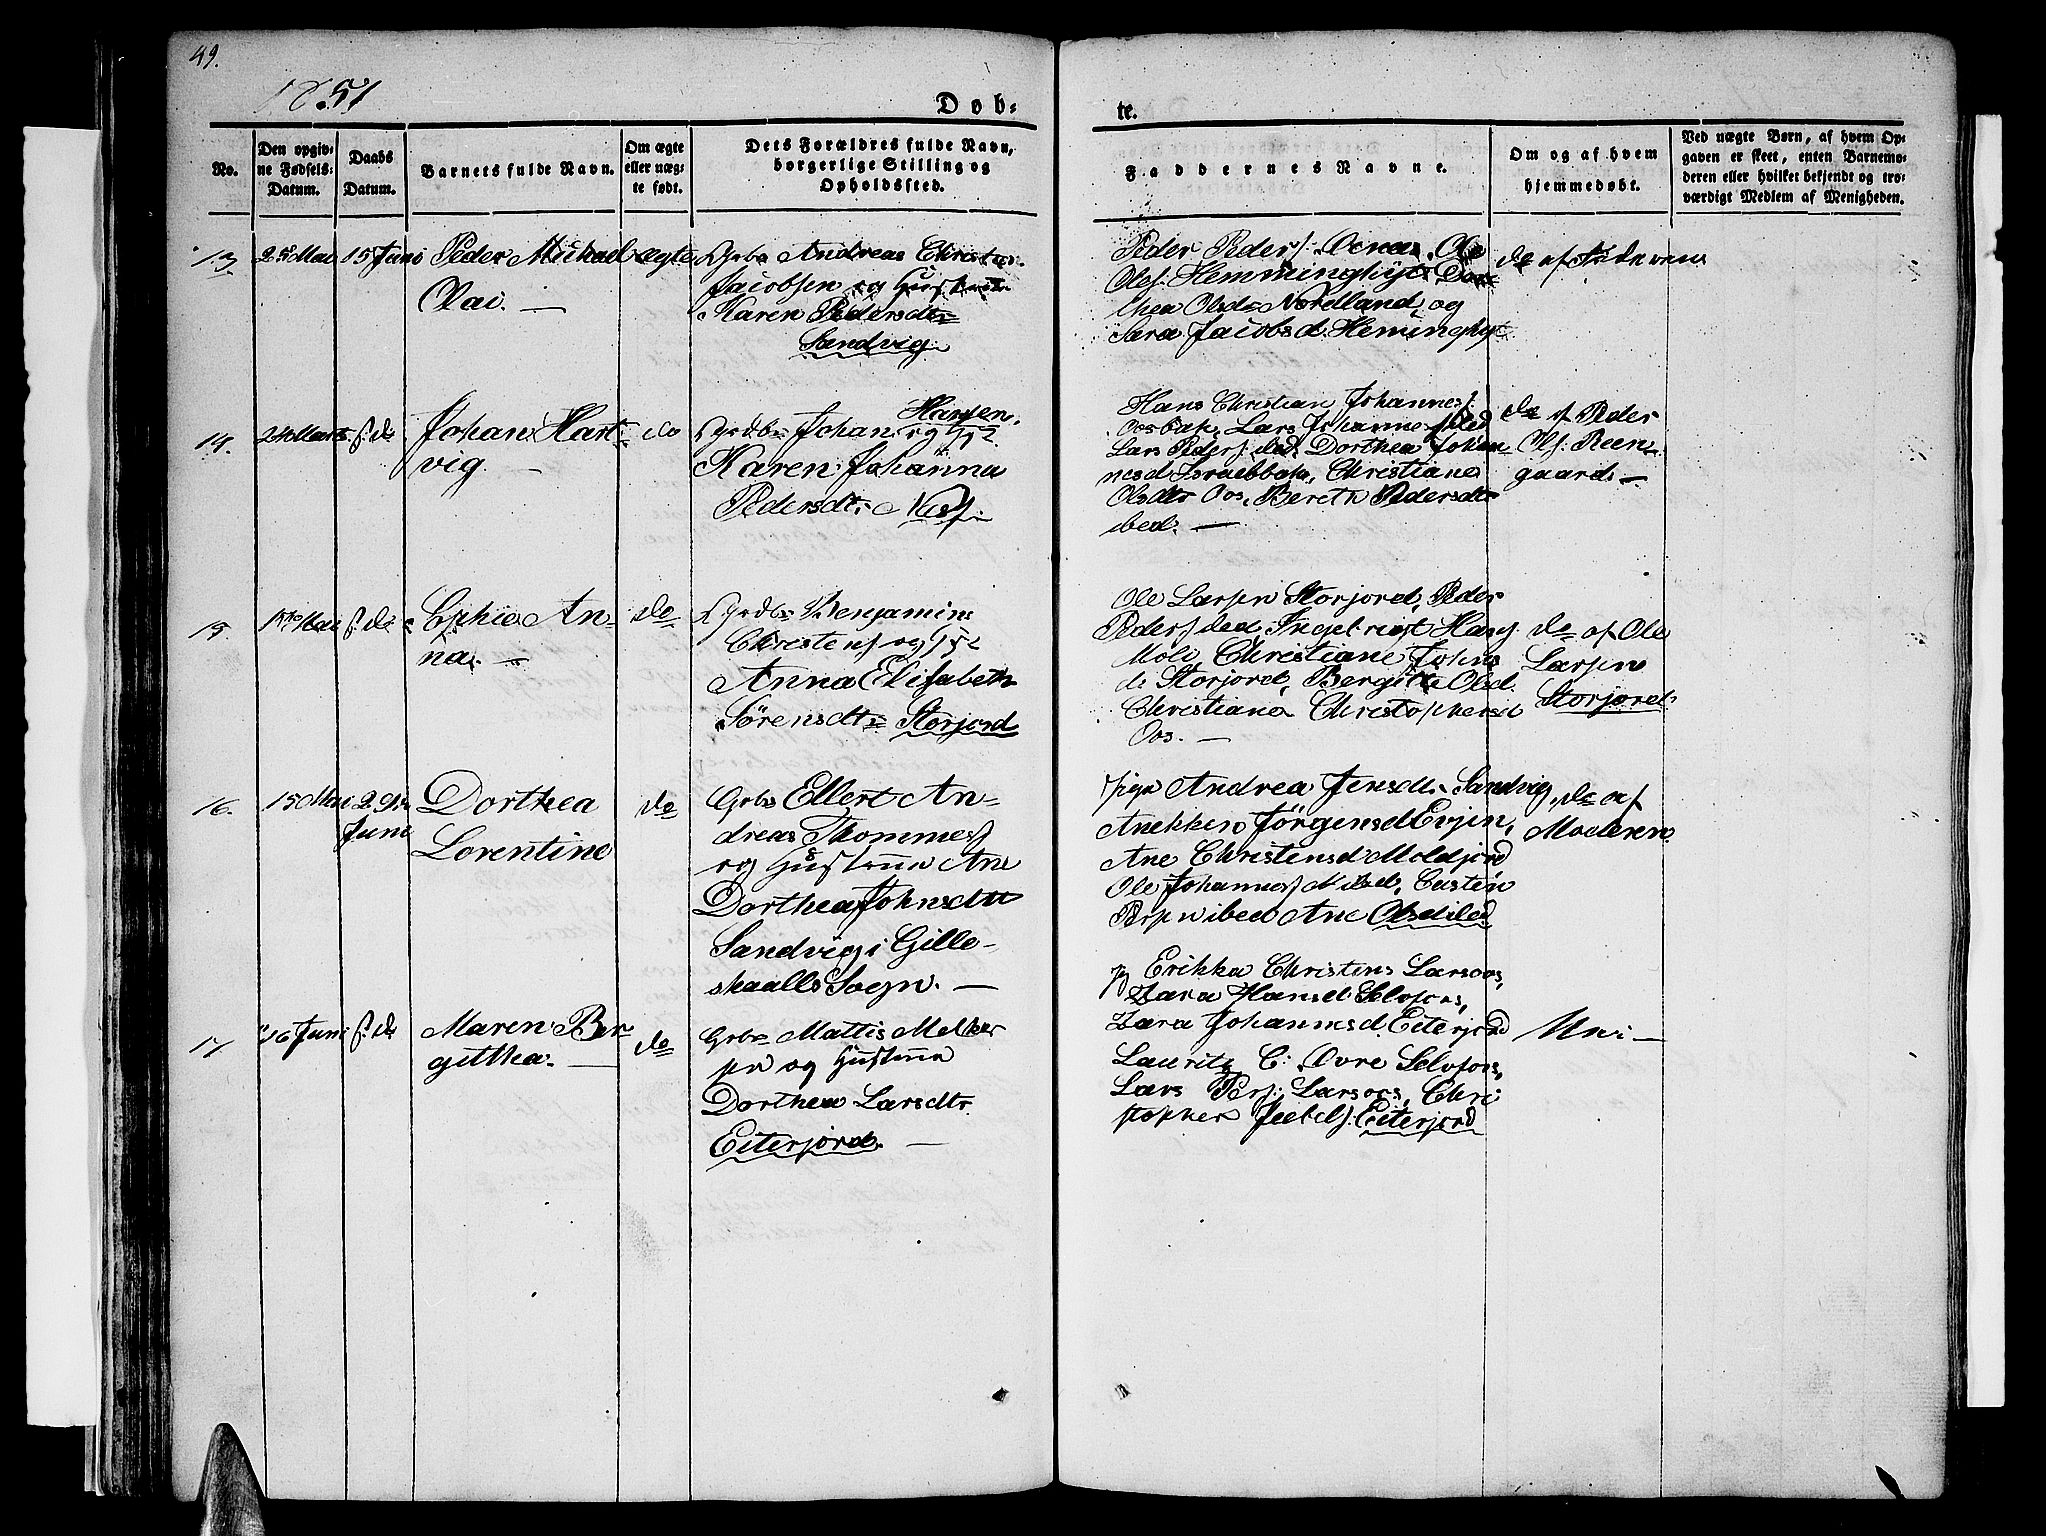 49.
1851
Dob-
te.
No.
Den opgiv-
ne Fødsels-
Datum.
Daabs
Datum.
Barnets fulde Navn.
Om ægte
eller uæg-
te født.
Dets Forældres fulde Navn,
borgerlige Stilling og
Opholdssted.
Faddernes Navne.
Om og af hvem
hjemmedøbt.
Ved uægte Børn, af hvem Op-
gaven er skeet, enten Barnemo-
deren eller hvilket bekjendt og tro-
værdigt Medlem af Menigheden.
13.
25 Mai
15 Juni
Peder Michael
Vai. —
ægte
Grb Andreas Christen
Jacobsen og Hustrue
Karen Pedersdtr
Sandvig
Peder Peders. Ole
Ols. Hemminghyt
thea Olsdr Nordland, og
Sara Jacobsd. Heminghyt
do af Faderen
14.
24 Marts
s. d.
Johan Hart-
vig. —
do
Grdbr Johan Hansen
og
Karen Johanna
Pedersdtr. Næs.
Hans Christian Johannes.
Oosbak, Lars Johannes. ibed
Lars Peders. ibed. Dorthea Johan-
nesd Israelbak, Christiane
Olsdtr Oos, Bereth Pedersdtr
ibed. —
do af Peder
Ols. Reen-
gaard. —
15.
Mai
s. d.
Ephia An-
na. —
do
Grdbr Benjamin
Christens. og
Anna Elisabeth
Sørensdtr Storjord
Ole Larsen Storjord, Peder
Peders. ibed, Ingebrigt Hans.
Mold, Christiane Johns
d. Storjord, Bergitte Olsd.
Christiane Christophersd
Oos. —
do af Ole
Larsen
Storjord.
16.
15 Mai
29
Juni
Dorthea
Lorentine
do
Grbr Ellert An-
dreas Thommes.
og Hustrue Ane
Dorthea Johnsdtr
Sandvig i Gille-
skaalls Sogn. —
Pige Andrea Jensdtr Sandvig,
Anekken Jörgensd Evjen,
Ane Christensd Moldjord
Ole Johannes. ibed, Casten
ibed Ane Olsd ibed
do af
Moderen.
17
16 Juni
s. d.
Maren Ber-
gitthea. —
do
Grbr Mattis Melker
sen og Hustrue
Dorthea Larsdtr
Eiterjord. —
Pg Erikka Christens Larsoos,
Zara Hansd. Selvfors,
Zara Johannesd Eiterjord
Lauritz C. Øvre Selvfors,
Lars Pers. Larsoos, Chri
stopher Eiterjord
Nei —